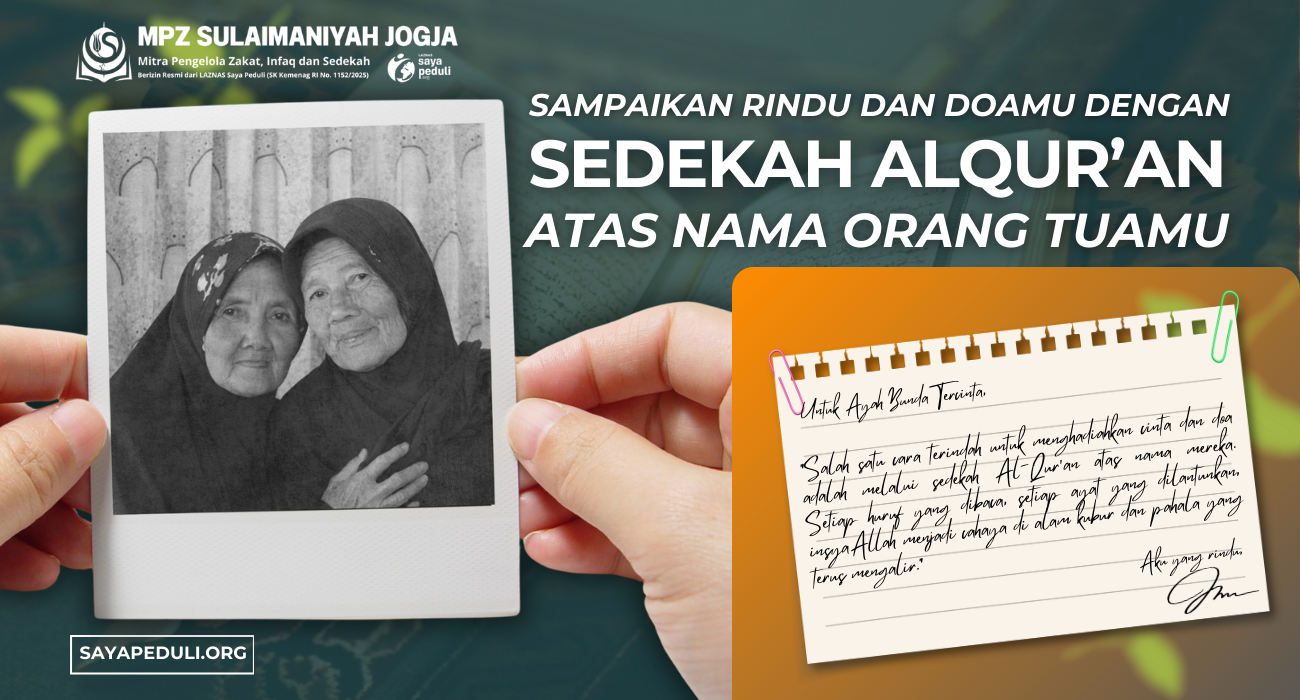 MPZ SULAIMANIYAH JOGJA
Mitra Pengelola Zakat, Infaq dan Sedekah
Berizin Resmi dari LAZNAS Saya Peduli (SK Kemenag RI No. 1152/2025)
LAZNAS
saya
peduli
SAMPAIKAN RINDU DAN DOAMU DENGAN
SEDEKAH ALQUR’AN
ATAS NAMA ORANG TUAMU
Untuk Ayah Bunda Tercinta,
"Salah satu cara terindah untuk menghadiahkan cinta dan doa
adalah melalui sedekah Al-Qur'an atas nama mereka.
Setiap huruf yang dibaca, setiap ayat yang dilantunkan,
insyaAllah menjadi cahaya di alam kubur dan pahala yang
terus mengalir."
Aku yang rindu,
SAYAPEDULI.ORG